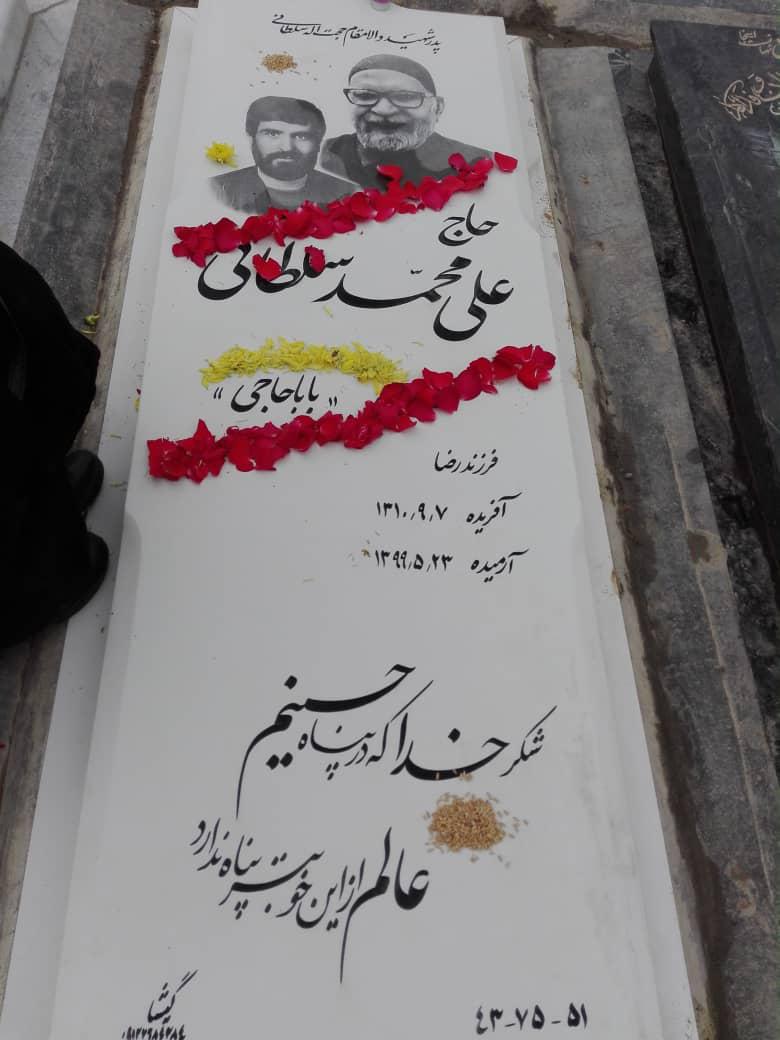 پدر شهید والامقام حجت اله سلطانی
حاج
علی محمد سلطانی
"باباحاجی"
فرزند رضا
آفریده ۱۳۱۰٫۹٫۷
آرمیده ۱۳۹۹٫۵٫۲۳
شکر خدا که در پناه حسینیم
عالم از این خوبتر پناه ندارد
۴۳-۷۵-۵۱
گیشا